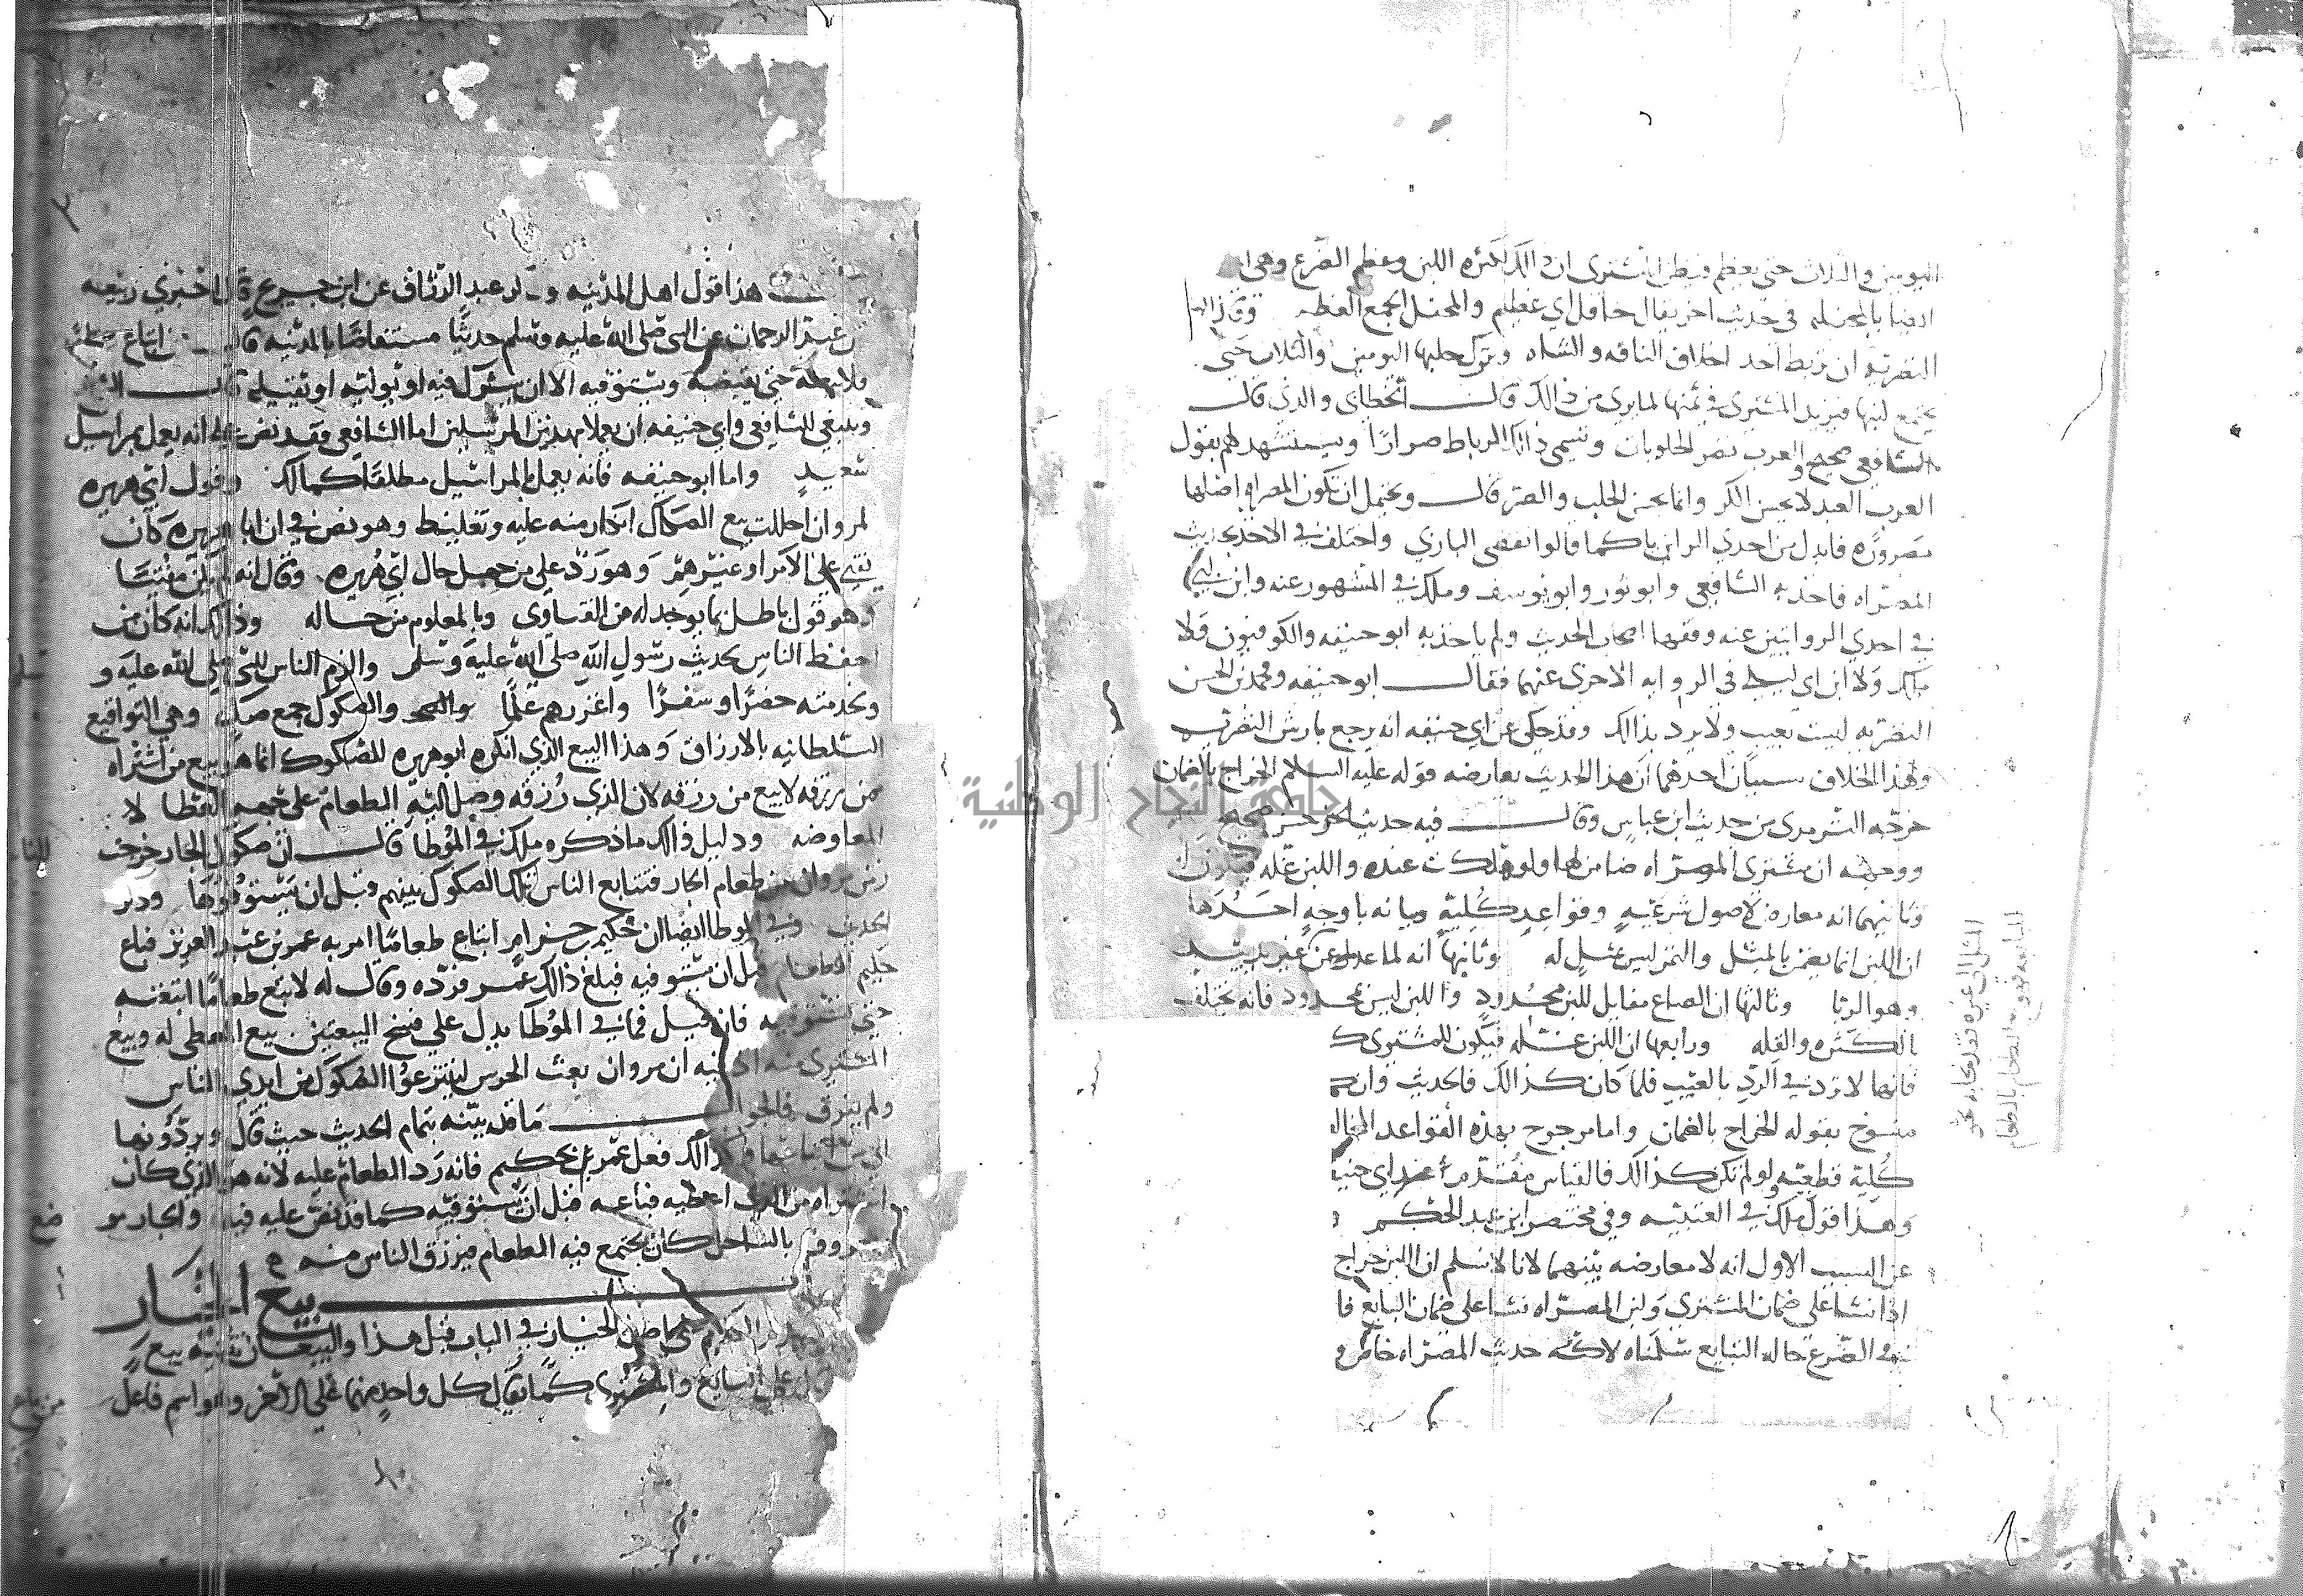 اليومين والثلاث حتى يعظم فيظن المشتري ان ذالك لكثره اللبن وعظم الضرع وهي
ايضا بالمحفله في حديث اخر يقال حافل اي عظيم والمحفل الجمع العظيم وقال
التصريه ان تربط احد اخلاف الناقه والشاه ويترك حلبها اليومين والثلاث حتى
يجتمع لبنها فيزيد المشتري في ثمنها لما يرى من ذالك قال الخطابي والذي قال
الشافعي صحيح والعرب تصر الحلوبات وتسمى ذالك الرباط صرارًا ويستشهد لهم بقول
العرب العبد لا يحسن الكر وانما يحسن الحلب والصر قال ويحتمل ان تكون المصراه اصلها
مصرورَه فابدل من احدي الراين ياكما قالوا تقضى البازي واختلف في الاخذ بحديث
المصرّاه فاخذ به الشافعي وابو ثور وابو يوسف وملك في المشهور عنه وابن ابي
في احدي الروايتين عنه وفقها اصحاب الحديث ولم ياخذ به ابو حنيفه والكوفيون ولا
ملك ولا ابن ابي ليلى في الروايه الاخرى عنهما فقال ابو حنيفه ومحمد بن الحسن
التصريه ليست بعيب ولا يرد بذالك وقد حكي عن ابي حنيفه انه يرجع بارش التصريه
ولهذا الخلاف سببان احدهما ان هذا الحديث يعارضه قوله عليه السلم الخراج بالضمان
خرجه الترمدى من حديث ابن عباس وقال فيه حديث
ووجهه ان مشترى المصرّاه ضامن لها ولو هلكت عنده واللبن غلّه فيكون له
وثانيهما انه معارض لاصول شرعيّهٍ وقواعدٍ كُليّةٍ وبيانه باوجهٍ احدها
ان اللبن انما يضمن بالمثل والتمر ليس بمثلٍ له وثانيها انه لما عدل عن غير
وهو الربا وثالثها ان الصاع مقابل للبن محدودٍ واللبن ليس بمحدود فانه يختلف
بالكثره والقله ورابعها ان اللبن غلّه فيكون للمشترى
فانها لا تردّ في الردّ بالعيب فلما كان كذالك فالحديث
منسوخ بقوله الخراج بالضمان واما مرجوح بهذه القواعد
كُلية قطعيّه ولو لم تكن كذالك فالقياس مُقدّم عند ابي
وهذا قول ملك في العتبيّه وفي مختصر ابن عبد الحكم
عن السبب الاول انه لا معارضه بينهما لانا لا نسلم ان اللبن خراج
اذا نشا على ضمان المشتري ولبن المصرّاه نشا على ضمان البايع
في الضرع حاله التبايع سلّمناه لاكنّه حديث المصراه خاصّ
هذا قول اهل المدينه عبد الرزاق عن ابن جريج قال اخبرني ربيعه
بن عبد الرحمان عن النبي صلى الله عليه وسلم حديثًا مستفاضًا بالمدينه قال من ابتاع
فلا يبعه حتى يقبضه ويستوفيه الا ان يشرك فيه او يوليه او يقيله قال
وينبغي للشافعي وابي حنيفه ان يعملا بهذين المرسلين اما الشافعي فقد نص على انه يعمل بمراسيل
سعيدٍ واما ابو حنيفه فانه يعمل بالمراسيل مطلقًا كمالك وقول ابي هريره
لمروان احللت بيع الصكاك انكار منه عليه وتغليظ وهو نص في ان ابا هريره كان
يفتي على الامرا وغيرهم وهو رَدّ على من جهل حال ابي هُريره وقال انه لم يكن مُفتيًا
وهو قول باطل بما يوجد له من الفتاوى وبالمعلوم من حاله وذالك انه كان من
احفظ الناس لحديث رسول الله صلى الله عليه وسلم والزم الناس للنبي صلى الله عليه و
وبخدمته حضرًا وسفرًا واغزرهم علمًا والصكوك جمع صكٍ وهي التواقيع
السلطانيه بالارزاق وهذا البيع الذي انكره ابو هريره للصكوك انما هو بيع من اشتراه
ممن رزقه لا بيع من رزقه لان الذي رُزقه وصل اليه الطعام على جهه العطا لا
المعاوضه ودليل ذالك ما ذكره ملك في المُوطا قال ان صكوك الجار خرجت
زمن مروان من طعام الجار فتبايع الناس تلك الصكوك بينهم قبل ان يستوفوها وذكر
الحديث وفي الموطا ايضا ان حكيم بن حزام ابتاع طعامًا امر به عمر بن عبد العزيز فباع
حكيم الطعام قبل ان يستوفيه فبلغ ذالك عمر فردّه وقال له لا تبع طعامًا ابتعته
حتى تستوفيه فان قيل فما في المُوطا يدل علي فسخ البيعتين بيع المعطى له وبيع
المشتري منه ان مروان بعث الحرس لينتزعوا الصكوك من ايدي الناس
ولم يفرق فالجواب ما قد بيّنه بتمام الحديث حيث قال ويردّونها
الى من ذالك فعل عمر بن حكيم فانه رَد الطعام عليه لانه هو الذي كان
اشتراه من الذي اعطيه فباعه قبل ان يستوفيه كما قد نصّ عليه فيه والجار
معروف بالساحل كان يجتمع فيه الطعام فيرزق الناس منه
بيع الخيار
الكلام على اصل الخيار في الباب قبل هذا والبيعان تثنيه بيع
على البايع والمشتري كما يقال كل واحد منهما على الاخر وهو اسم فاعل
جامعة النجاح الوطنية